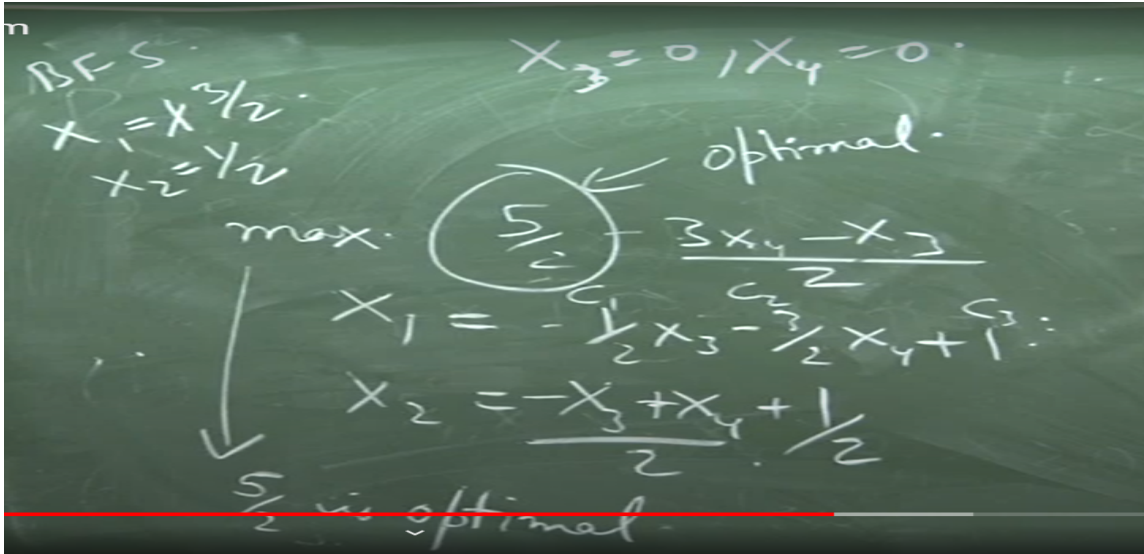 m
BFS.
x₁ = x 3/2.
x₂ = 1/2
x₃ = 0, x₄ = 0.
optimal.
max. 5/2 - (3x₄ - x₃)/2
C₁ C₂ C₃
x₁ = - 1/2 x₃ - 3/2 x₄ + 1.
x₂ = (-x₃ + x₄)/2 + 1/2
5/2 is optimal.